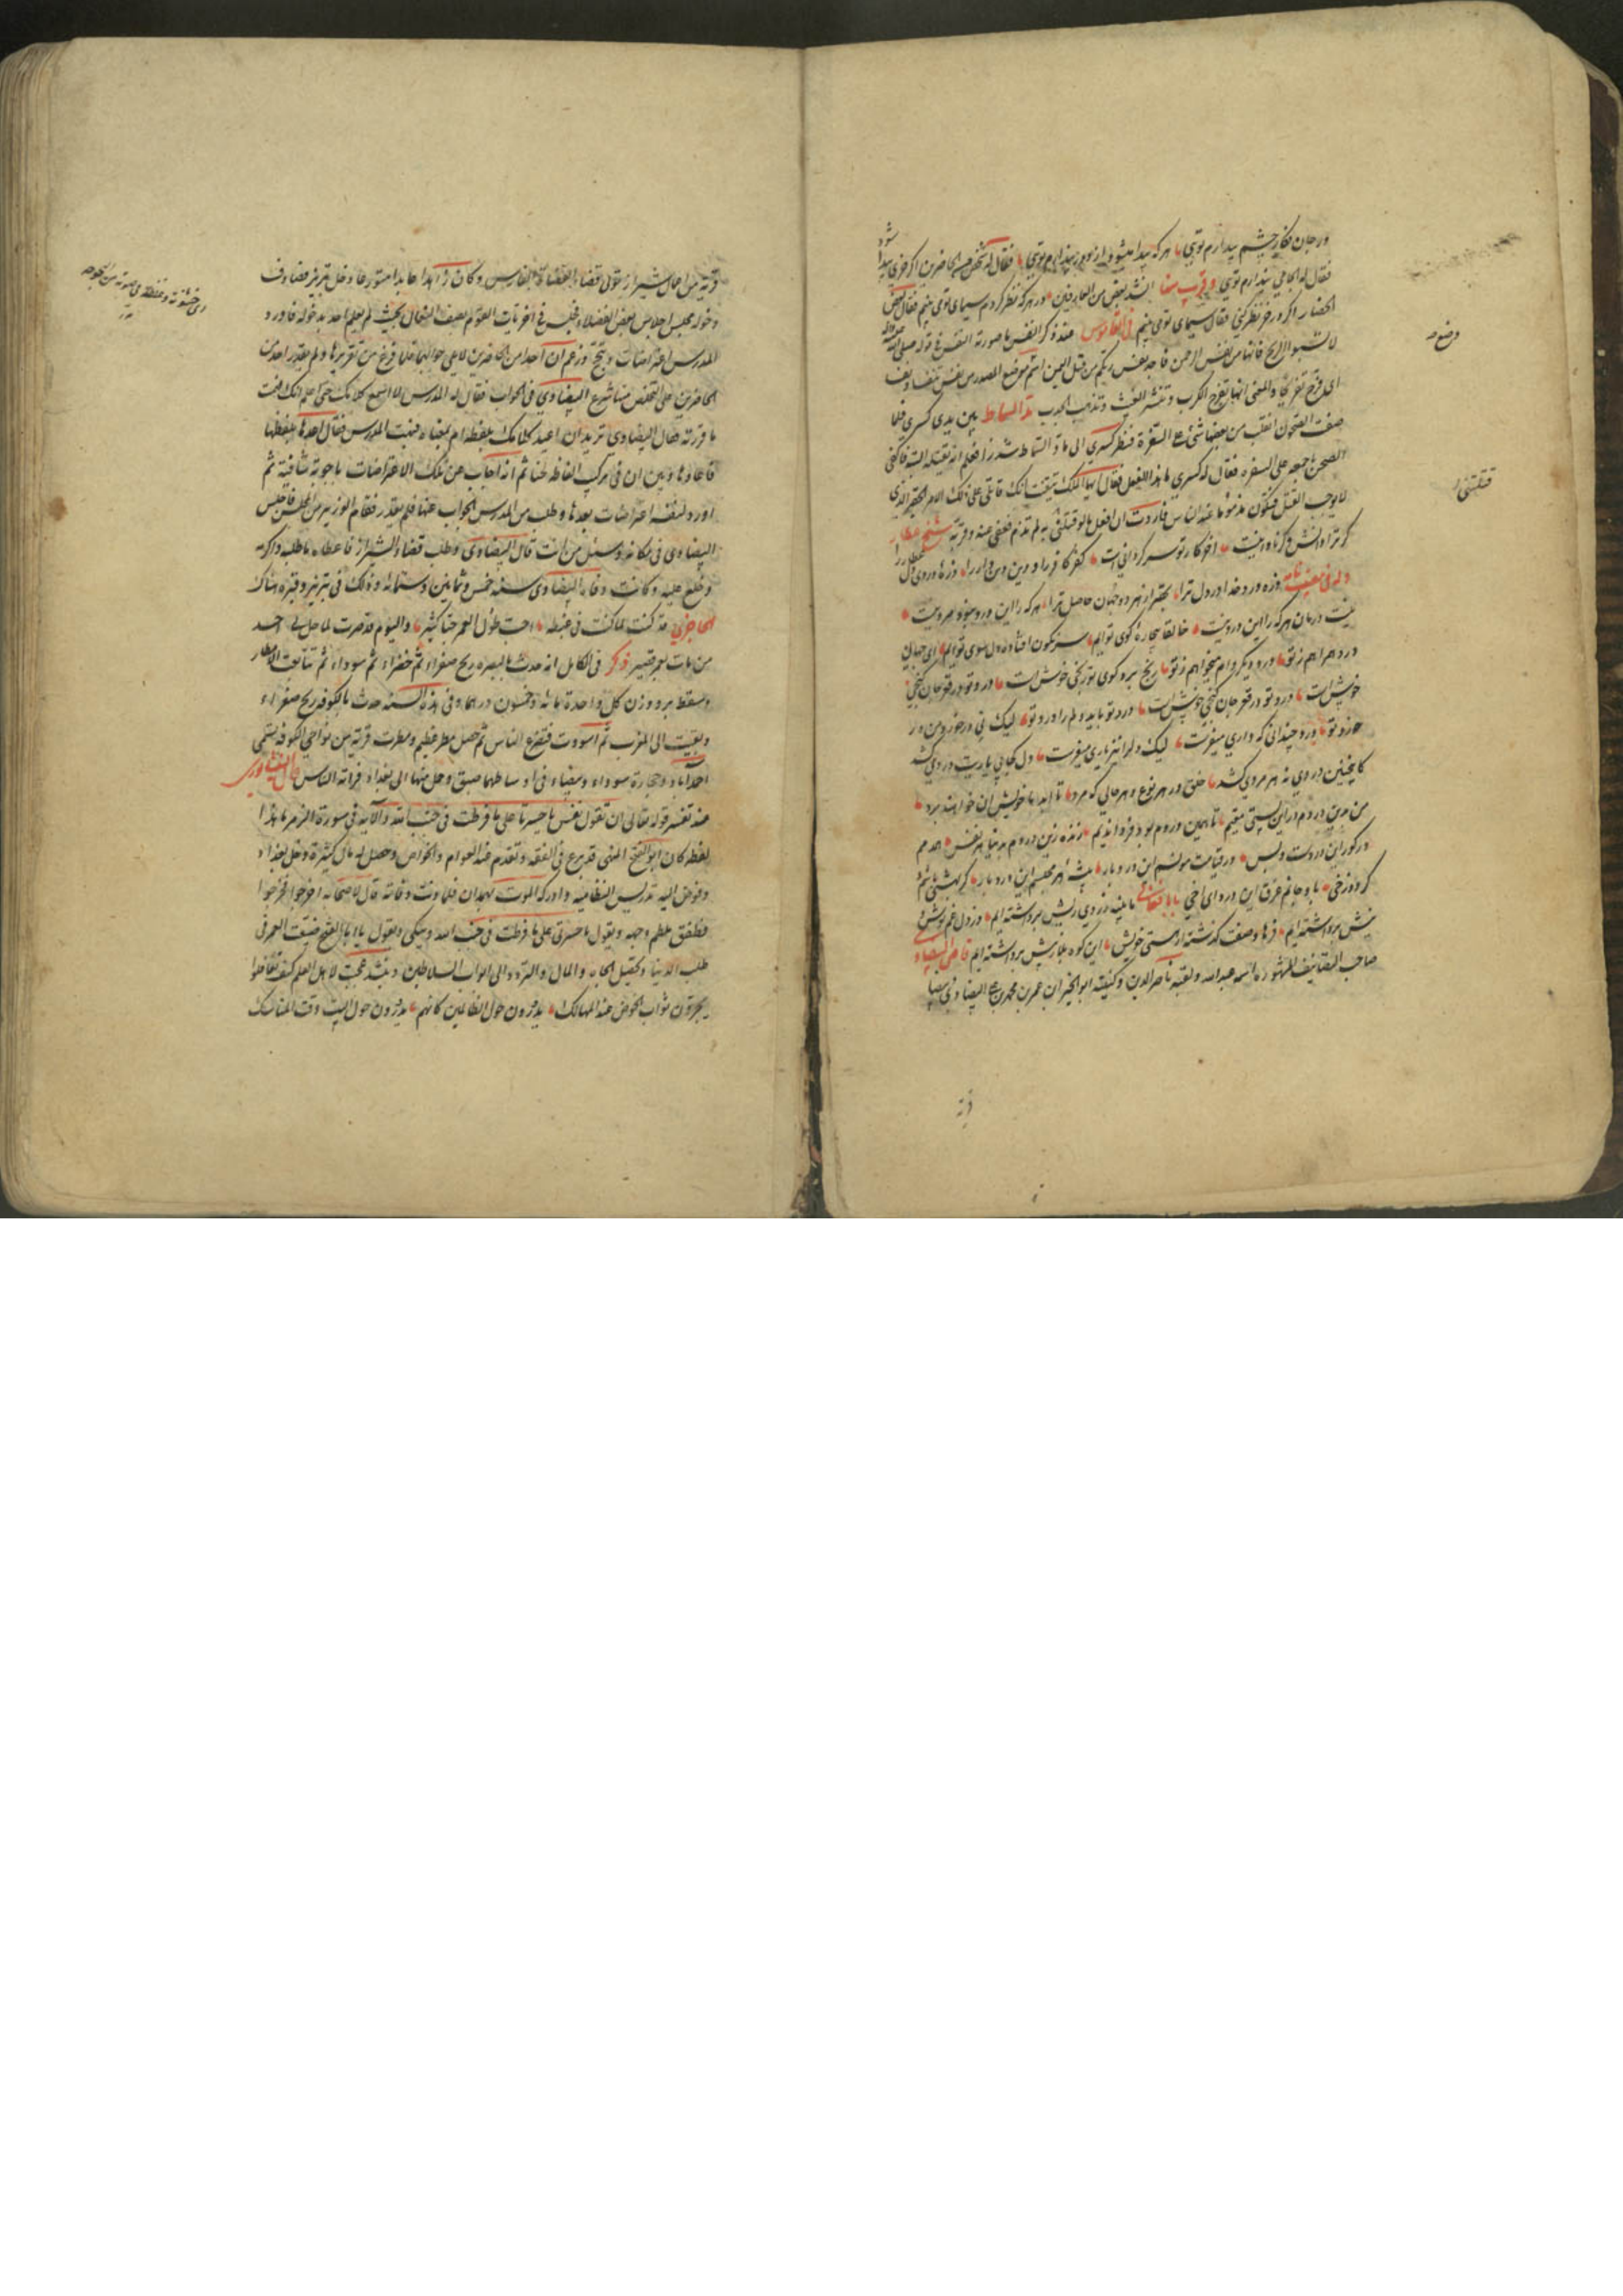 در جان فکار چشم بیدارم تویی هر که پیدا میشود از دور پندارم تویی فقال له شخص من الحاضرین اگر خری پیدا شود
فقال له الجامی پندارم تویی و قریب منه انشد بعض من العارفین در هر که نظر کردم سیمای تو می بینم فقال بعض
الحضار اگر در خر نظر کنی فقال سیمای تو می بینم فی القاموس عند ذکر النفس ما صورته النفس فی قوله صلی الله علیه واله
لا تسبوا الریح فانها من نفس الرحمن و اجد نفس ربکم من قبل الیمن اسم موضع المصدر من نفس تنفیسا و نفسا
ای فرج تفریجا والمعنی انها تفرج الکرب و تنشر الغیث و تذهب الجدب مد السماط بین یدی کسری فلما
صفت الصحون انقلب من بعضها شیء علی السفرة فنظر کسری الی مادّ السماط شزرا فعلم انه یقتله البتة فاکفی
الصحن باجمعه علی السفره فقال له کسری ما هذا الفعل فقال ایها الملک تیقنت انک قاتلی علی ذلک الامر الحقیر الذی
لا یوجب القتل فتکون مذموما عند الناس فاردت ان افعل ما لو قتلتنی به لم تذم فعفی عنه و قربه شیخ عطار
گر ترا دانش و گر نادانیست آخر کار تو سرگردانی است کفر کافر را و دین دین دار را ذره دردی دل عطار را
وله فی مصیبت نامه ذره درد خدا در دل ترا بهتر از هر دو جهان حاصل ترا هر که را این درد نبود مرد نیست
نیست درمان هر که را این درد نیست خالقا بیچاره کوی توایم سرنگون افتاده دل سوی توایم ای جهانی
درد همراهم ز تو درد دیگر وام میخواهم ز تو رنج برد کوی تو رنجی خوش است درد تو در قعر جان گنجی
خوش است درد تو در قعر جان گنجی خوش است درد تو باید دلم را درد تو لیک نی در خورد من در
خورد تو درد چندانی که داری میفرست لیک دل را نیز یاری میفرست دل کجا بی یاریت دردی کشد
کاینچنین دردی نه هر مردی کشد خلق در هر نوع و هر حالی که مرد تا ابد با خویش آن خواهند برد
من درین دردم درین پستی مقیم تا همین دردم بود فردا ندیم زنده زین دردم به دنیا هر نفس همدمم
در گور این دردست و بس در قیامت مونسم این درد باد پیشه ام هم این درد باد گر بهشتی باشم و
گر دوزخی باد جانم غرق این درد ای اخی بابا فغانی ما پنبه ز روی ریش برداشته ایم وز دل غم نوش و
نیش برداشته ایم فرهاد صفت گذشته از هستی خویش این کوه بلا ز پیش برداشته ایم قاضی البیضاوی
صاحب التصانیف المشهوره اسمه عبدالله و لقبه ناصر الدین و کنیته ابو الخیر ابن عمر بن محمد بن علی البیضاوی بیضا
وضوح
قتلتنی
قریة
قریة من اعمال شیراز تولی قضاء القضاة بفارس و کان زاهدا عابدا متورعا دخل تبریز فصادف
دخوله مجلس اجلاس بعض الفضلاء فجلس فی اخریات القوم بصف النعال بحیث لم یعلم احد بدخوله فاورد
المدرس اعتراضات و تبجح و زعم ان احدا من الحاضرین لا یعی جوابها فلما فرغ من تقریرها و لم یقدر احد من
الحاضرین علی التخلص منها شرع البیضاوی فی الجواب فقال له المدرس لا اسمع کلامک حتی اعلم انک فهمت
ما قررته فقال البیضاوی ترید ان اعید کلامک بلفظه ام بمعناه فبهت المدرس فقال اعدها بلفظها
فاعادها و بین ان فی ترکیب الفاظه لحنا ثم انه اجاب عن تلک الاعتراضات باجوبة شافیة ثم
اورد لنفسه اعتراضات بعدها و طلب من المدرس الجواب عنها فلم یقدر فقام الوزیر من المجلس فاجلس
البیضاوی فی مکانه و سئل من انت قال البیضاوی و طلب قضاء الشیراز فاعطاه ما طلبه و اکرمه
و خلع علیه و کانت وفاة البیضاوی سنه خمس و ثمانین و ستمائة و ذلک فی تبریز و قبره هناک
الحاجری قد کنت لما کنت فی غبطه احب طول العمر حبا کثیر و الیوم قد صرت لما حل بی احسد
من مات بعمر قصیر ذکر فی الکامل انه حدث بالبصره ریح صفراء ثم خضراء ثم سوداء ثم تتابعت الامطار
و سقط برد وزن کل واحدة مائة و خمسون درهما و فی هذه السنه حدث بالکوفه ریح صفراء
و بقیت الی المغرب ثم اسودت فتضرع الناس ثم حصل مطر عظیم و مطرت قریة من نواحی الکوفه تسمی
احداباد حجارة سوداء و بیضاء فی اوساطها ضیق و حمل منها الی بغداد فراته الناس قال النیشابوری
عند تفسیر قوله تعالی ان تقول نفس یا حسرتا علی ما فرطت فی جنب الله والآیة فی سورة الزمر ما هذا
لفظه کان ابو الفتح المنهی قد برع فی الفقه و تقدم عند العوام و الخواص و حصل له مال کثیر و دخل بغداد
و فوض الیه تدریس النظامیه و ادرکه الموت بهمدان فلما دنت وفاته قال لاصحابه اخرجوا فخرجوا
فطفق یلطم وجهه و یقول یا حسرتی علی ما فرطت فی جنب الله و یبکی و یقول یا ابا الفتح ضیعت العمر فی
طلب الدنیا و تحصیل الجاه و المال و التردد الی ابواب السلاطین و ینشد عجبت لاهل العلم کیف تغافلوا
یجرون ثواب الحرص عند المهالک یدورون حول الظالمین کانهم یدورون حول البیت وقت المناسک